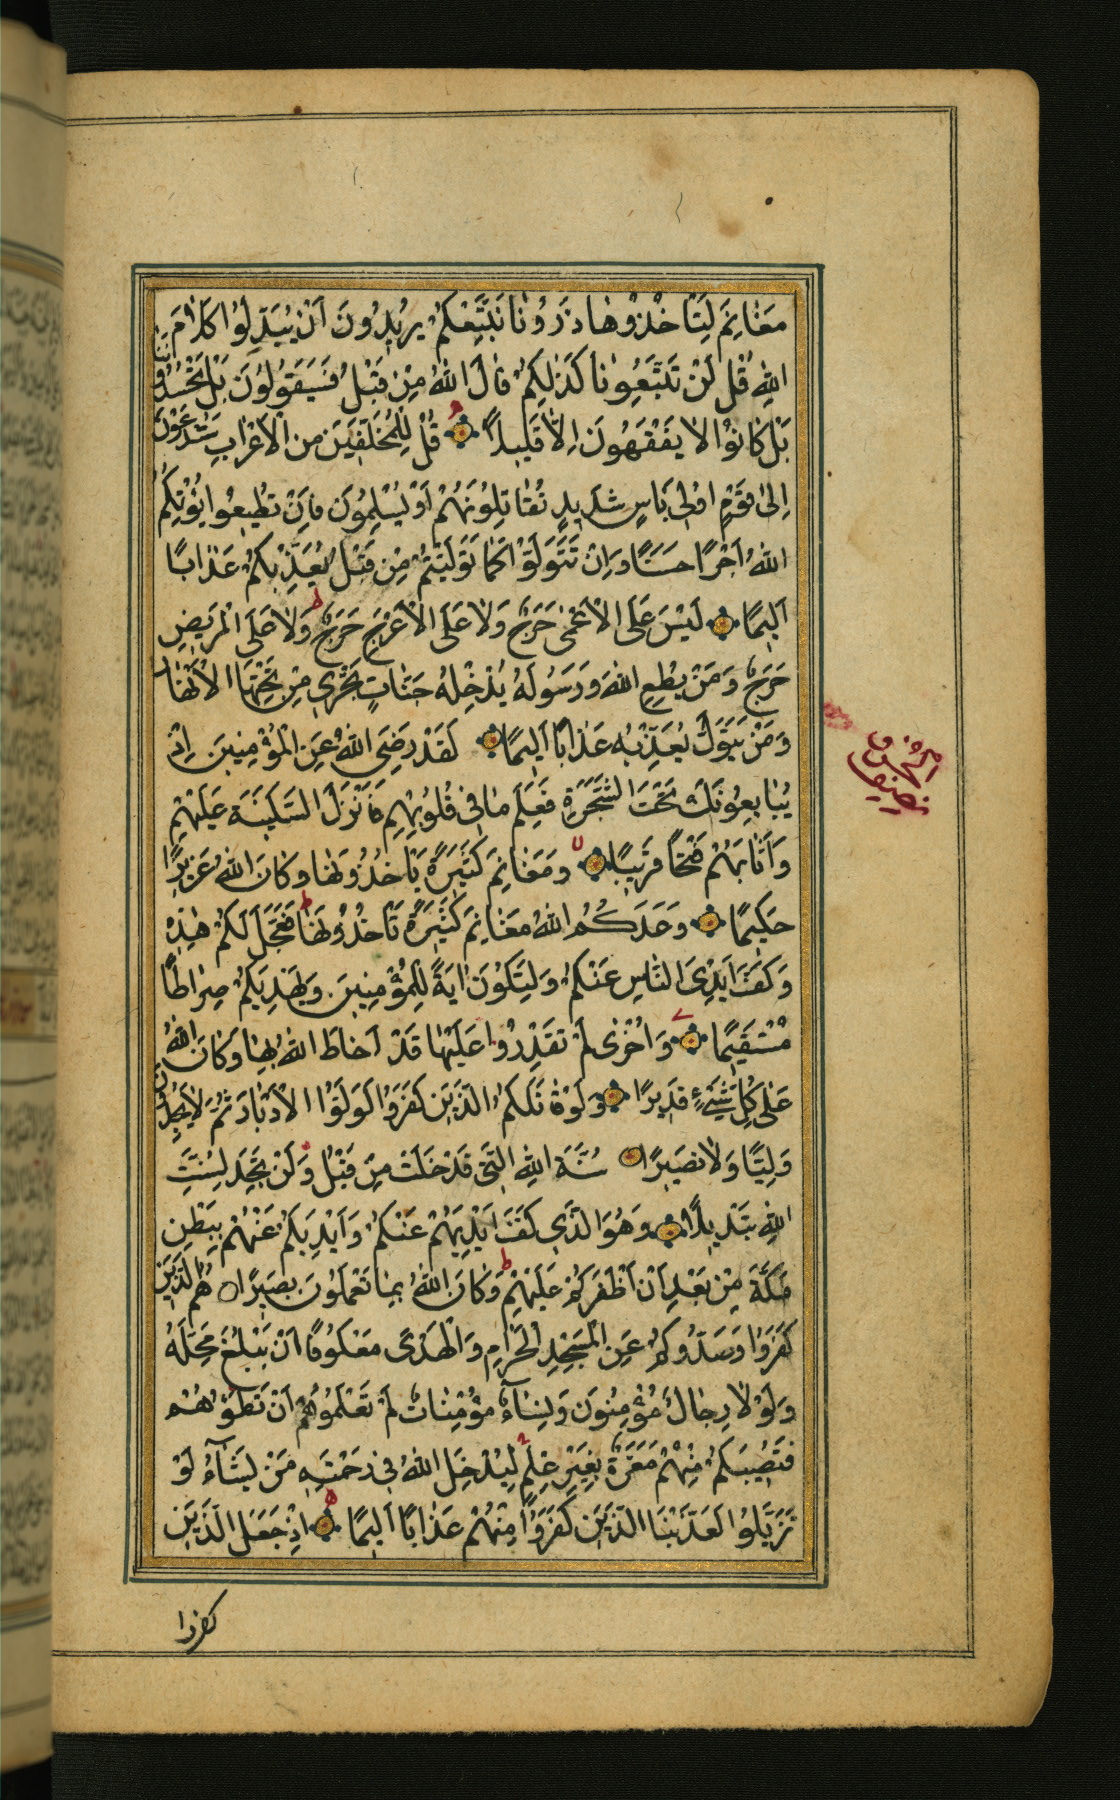 مَغَانِمَ لِتَأْخُذُوهَا ذَرُونَا نَتَّبِعْكُمْ يُرِيدُونَ أَنْ يُبَدِّلُوا كَلَامَ
اللَّهِ قُلْ لَنْ تَتَّبِعُونَا كَذَلِكُمْ قَالَ اللَّهُ مِنْ قَبْلُ فَسَيَقُولُونَ بَلْ تَحْسُدُونَنَا
بَلْ كَانُوا لَا يَفْقَهُونَ إِلَّا قَلِيلًا قُلْ لِلْمُخَلَّفِينَ مِنَ الْأَعْرَابِ سَتُدْعَوْنَ
إِلَى قَوْمٍ أُولِي بَأْسٍ شَدِيدٍ تُقَاتِلُونَهُمْ أَوْ يُسْلِمُونَ فَإِنْ تُطِيعُوا يُؤْتِكُمُ
اللَّهُ أَجْرًا حَسَنًا وَإِنْ تَتَوَلَّوْا كَمَا تَوَلَّيْتُمْ مِنْ قَبْلُ يُعَذِّبْكُمْ عَذَابًا
أَلِيمًا لَيْسَ عَلَى الْأَعْمَى حَرَجٌ وَلَا عَلَى الْأَعْرَجِ حَرَجٌ وَلَا عَلَى الْمَرِيضِ
حَرَجٌ وَمَنْ يُطِعِ اللَّهَ وَرَسُولَهُ يُدْخِلْهُ جَنَّاتٍ تَجْرِي مِنْ تَحْتِهَا الْأَنْهَارُ
وَمَنْ يَتَوَلَّ يُعَذِّبْهُ عَذَابًا أَلِيمًا لَقَدْ رَضِيَ اللَّهُ عَنِ الْمُؤْمِنِينَ إِذْ
يُبَايِعُونَكَ تَحْتَ الشَّجَرَةِ فَعَلِمَ مَا فِي قُلُوبِهِمْ فَأَنْزَلَ السَّكِينَةَ عَلَيْهِمْ
وَأَثَابَهُمْ فَتْحًا قَرِيبًا وَمَغَانِمَ كَثِيرَةً يَأْخُذُونَهَا وَكَانَ اللَّهُ عَزِيزًا
حَكِيمًا وَعَدَكُمُ اللَّهُ مَغَانِمَ كَثِيرَةً تَأْخُذُونَهَا فَعَجَّلَ لَكُمْ هَذِهِ
وَكَفَّ أَيْدِيَ النَّاسِ عَنْكُمْ وَلِتَكُونَ آيَةً لِلْمُؤْمِنِينَ وَيَهْدِيَكُمْ صِرَاطًا
مُسْتَقِيمًا وَأُخْرَى لَمْ تَقْدِرُوا عَلَيْهَا قَدْ أَحَاطَ اللَّهُ بِهَا وَكَانَ اللَّهُ
عَلَى كُلِّ شَيْءٍ قَدِيرًا وَلَوْ قَاتَلَكُمُ الَّذِينَ كَفَرُوا لَوَلَّوُا الْأَدْبَارَ ثُمَّ لَا يَجِدُونَ
وَلِيًّا وَلَا نَصِيرًا سُنَّةَ اللَّهِ الَّتِي قَدْ خَلَتْ مِنْ قَبْلُ وَلَنْ تَجِدَ لِسُنَّتِ
اللَّهِ تَبْدِيلًا وَهُوَ الَّذِي كَفَّ أَيْدِيَهُمْ عَنْكُمْ وَأَيْدِيَكُمْ عَنْهُمْ بِبَطْنِ
مَكَّةَ مِنْ بَعْدِ أَنْ أَظْفَرَكُمْ عَلَيْهِمْ وَكَانَ اللَّهُ بِمَا تَعْمَلُونَ بَصِيرًا هُمُ الَّذِينَ
كَفَرُوا وَصَدُّوكُمْ عَنِ الْمَسْجِدِ الْحَرَامِ وَالْهَدْيَ مَعْكُوفًا أَنْ يَبْلُغَ مَحِلَّهُ
وَلَوْلَا رِجَالٌ مُؤْمِنُونَ وَنِسَاءٌ مُؤْمِنَاتٌ لَمْ تَعْلَمُوهُمْ أَنْ تَطَئُوهُمْ
فَتُصِيبَكُمْ مِنْهُمْ مَعَرَّةٌ بِغَيْرِ عِلْمٍ لِيُدْخِلَ اللَّهُ فِي رَحْمَتِهِ مَنْ يَشَاءُ لَوْ
تَزَيَّلُوا لَعَذَّبْنَا الَّذِينَ كَفَرُوا مِنْهُمْ عَذَابًا أَلِيمًا إِذْ جَعَلَ الَّذِينَ
كفروا
نصف
الحزب